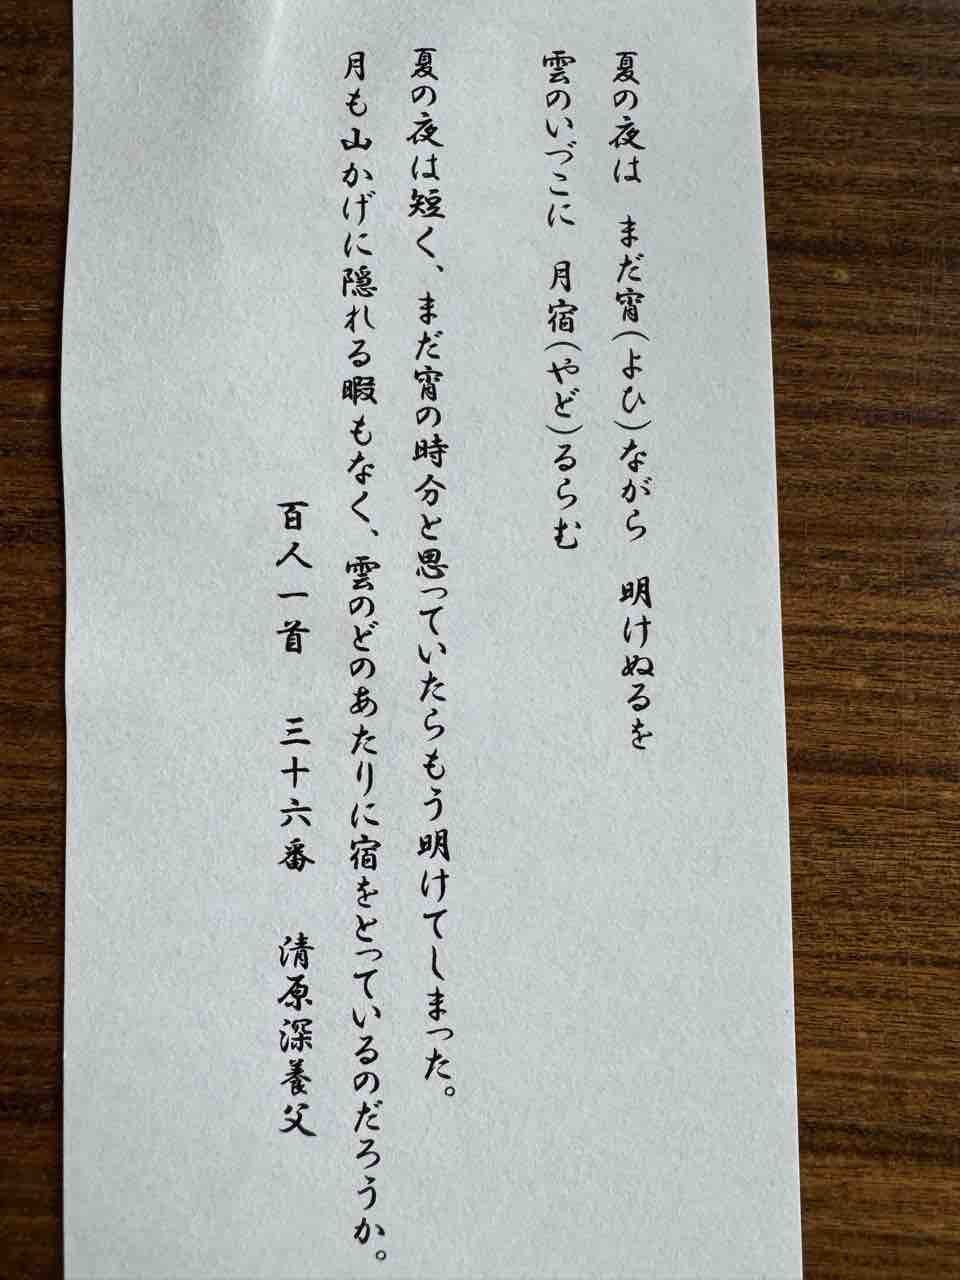 夏の夜は　まだ宵(よひ)ながら　明けぬるを
雲のいづこに　月宿(やど)るらむ
夏の夜は短く、まだ宵の時分と思っていたらもう明けてしまった。
月も山かげに隠れる暇もなく、雲のどのあたりに宿をとっているのだろうか。
百人一首　三十六番　清原深養父